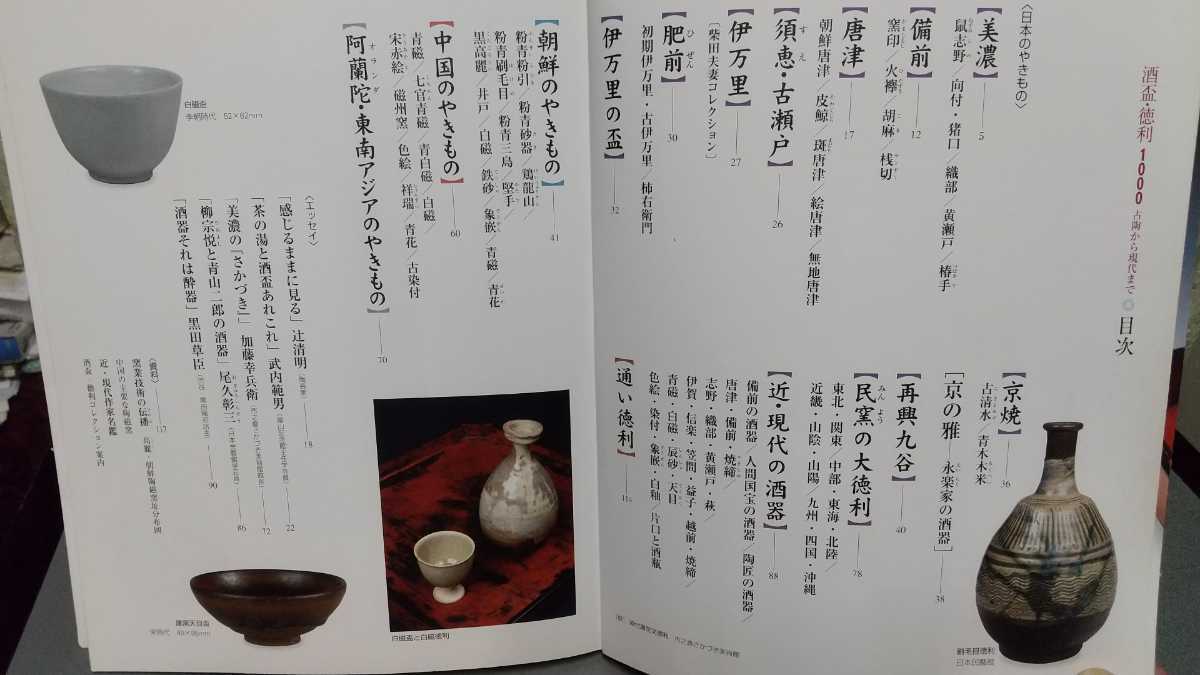 酒盃・徳利1000 古陶から現代まで 目次
〈日本のやきもの〉
【美濃】 5
鼠志野/向付・猪口/織部/黄瀬戸/椿手
【備前】 12
窯印/火襷/胡麻/桟切
【唐津】 17
朝鮮唐津/皮鯨/斑唐津/絵唐津/無地唐津
【須恵・古瀬戸】 26
【伊万里】 27
〔柴田夫妻コレクション〕
【肥前】 30
初期伊万里・古伊万里/柿右衛門
【伊万里の盃】 32
【京焼】 36
古清水/青木木米
［京の雅――永楽家の酒器］ 38
【再興九谷】 40
【民窯の大徳利】 78
東北・関東/中部・東海・北陸/
近畿・山陰・山陽/九州・四国・沖縄
【近・現代の酒器】 88
備前の酒器/人間国宝の酒器/陶匠の酒器/
唐津・備前・焼締/
志野・織部・黄瀬戸・萩/
伊賀・信楽・笠間・益子・越前・焼締/
青磁・白磁・辰砂・天目/
色絵・染付・象嵌・白釉/片口と酒瓶
【通い徳利】
刷毛目徳利
日本民藝館
【朝鮮のやきもの】 41
粉青粉引/粉青砂器/鶏龍山/
粉青刷毛目/粉青三島/堅手/
黒高麗/井戸/白磁/鉄砂/象嵌/青磁/青花
【中国のやきもの】 60
青磁/七官青磁/青白磁/白磁/
宋赤絵/磁州窯/色絵/祥瑞/青花/古染付
【阿蘭陀・東南アジアのやきもの】 70
〈エッセイ〉
「感じるままに見る」辻清明 18
「茶の湯と酒盃あれこれ」武内範男 22
「美濃の「さかづき」」加藤幸兵衛 72
「柳宗悦と青山二郎の酒器」尾久彰三 86
「酒器それは酔器」黒田草臣 90
〈資料〉
窯業技術の伝播 117
高麗・朝鮮陶磁窯址分布図
中国の主要な陶磁窯
近・現代作家名鑑
酒盃・徳利コレクション案内
白磁盃
李朝時代 52×82mm
白磁盃と白磁徳利
建窯天目盃